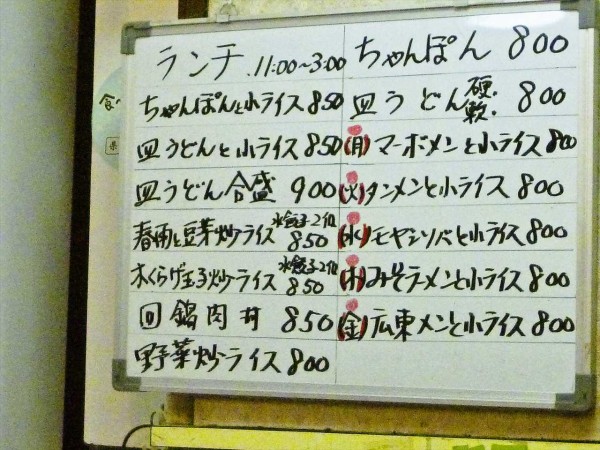 ランチ 11:00~3:00
ちゃんぽんと小ライス 850
皿うどんと小ライス 850
皿うどん合盛 900
春雨と豆菜炒ライス 水餃子2個 850
木くらげ玉子炒ライス 水餃子2個 850
回鍋肉丼 850
野菜炒ライス 800
ちゃんぽん 800
皿うどん 硬. 軟. 800
(月)マーボメンと小ライス 800
(火)タンメンと小ライス 800
(水)モヤシソバと小ライス 800
(木)みそラーメンと小ライス 800
(金)広東メンと小ライス 800
食べ